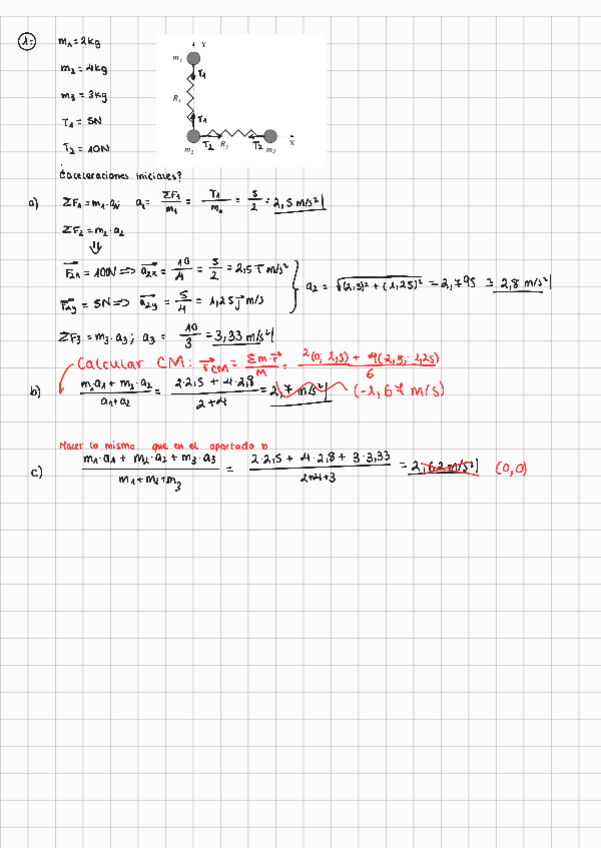 1= m₁ = 2kg
m₂ = 4kg
m₃ = 3kg
T₁ = 5N
T₂ = 10N
Y
m₁
T₁
R₁
T₁
T₂ R₂ T₂ X
m₂ m₃
¿aceleraciones iniciales?
a) ΣF₁ = m₁·a₁; a₁ = ΣF₁/m₁ = T₁/m₁ = 5/2 = 2,5 m/s²
ΣF₂ = m₂·a₂
⇓
F₂ₓ = 10N => a₂ₓ = 10/4 = 5/2 = 2,5 i m/s²
F₂y = 5N => a₂y = 5/4 = 1,25 j m/s
a₂ = √((2,5)² + (1,25)²) = 2,795 ≅ 2,8 m/s²
ΣF₃ = m₃·a₃; a₃ = 10/3 = 3,33 m/s²
Calcular CM: r_CM = Σm·r/M = 2(0,2,5) + 4(2,5, 1,25)/6
b) m₁a₁ + m₂·a₂/a₁+a₂ = 2·2,5 + 4·2,8/2+4 = 2,7 m/s² (-1,67 m/s)
Hacer lo mismo que en el apartado b
c) m₁·a₁ + m₂·a₂ + m₃·a₃/m₁+m₂+m₃ = 2·2,5 + 4·2,8 + 3·3,33/2+4+3 = 2,62 m/s² (0,0)